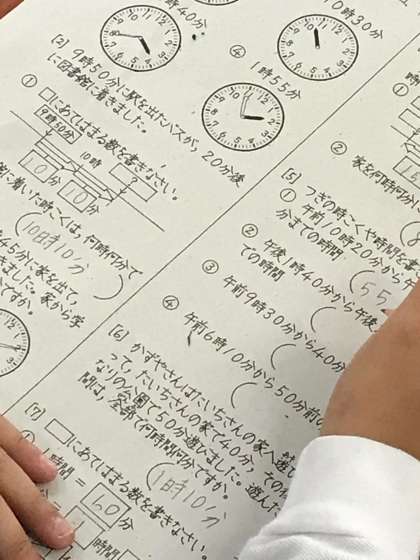 時40分
10時30分
④
1時55分
[2]
9時50分に駅を出たバスが、20分後
に図書館に着きました。
① □にあてはまる数を書きなさい。
9時50分
10時
?
10分
10分
館に着いた時こくは、何時何分で
(10時10分)
45分に家を出て、
きました。家から学
ですか。
②
家を何時何分に
[5]
つぎの時こくや時間を書
① 午前10時20分から
分までの時間
② 午後1時40分から午後
での時間
(55
③ 午前9時30分から40分
(
④ 午前6時10分から50分前の
(
[6]
かずやさんはたいちさんの家へ遊
って、たいちさんの家で40分、その
なりの公園で50分遊びました。遊んだ
間は、全部で何時間何分ですか。
(1時10分
[7]
□にあてはまる数を書きなさい。
①
1時間 = 60 分
時間